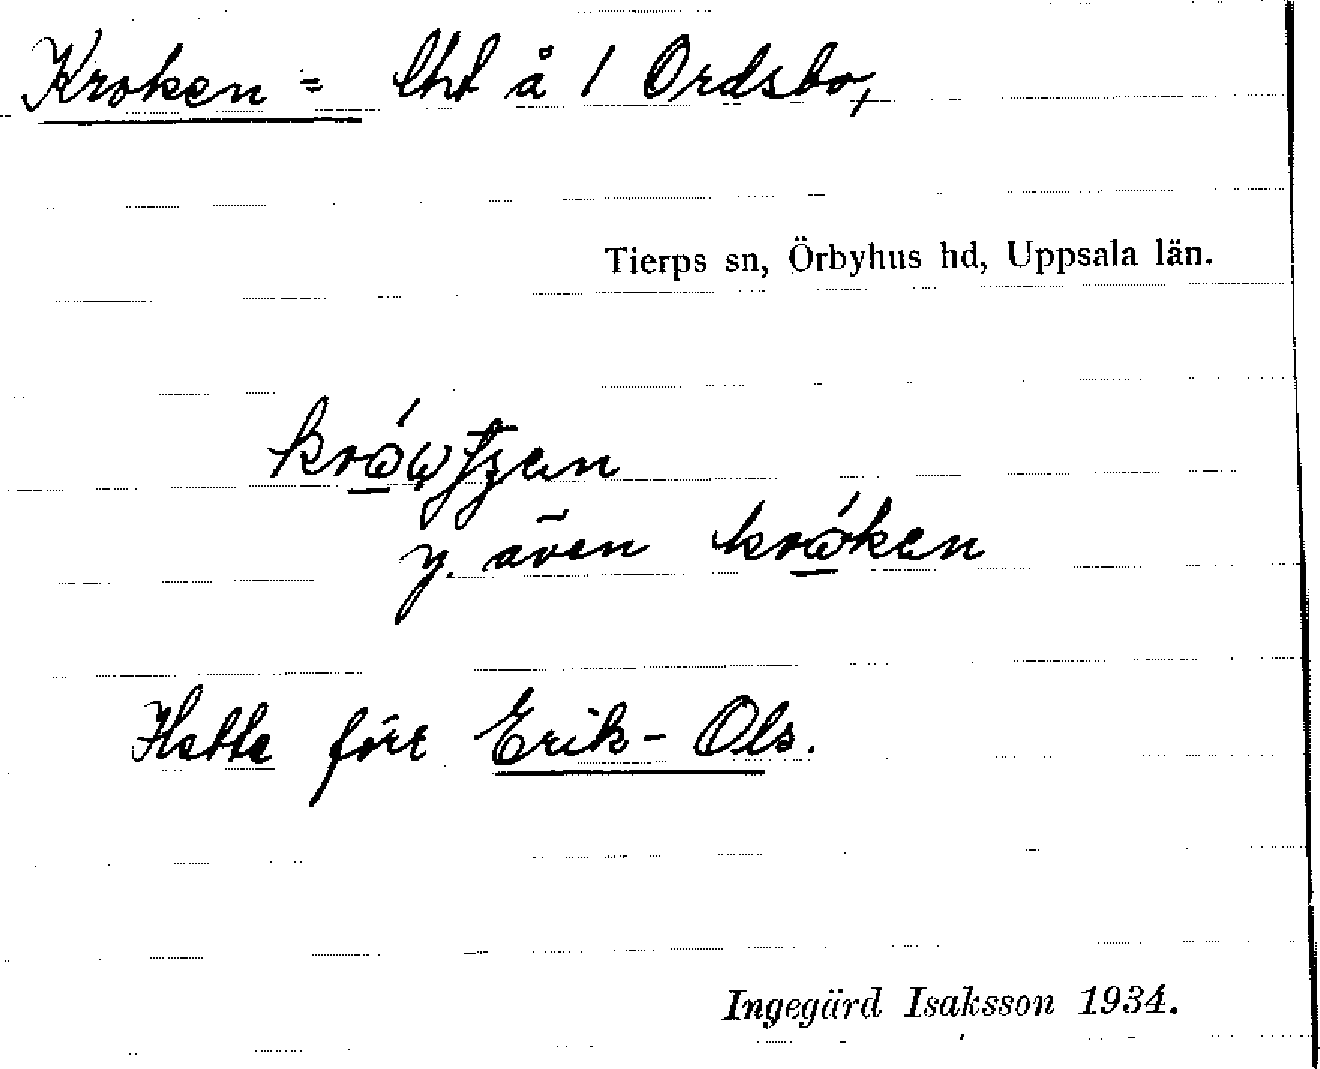 Kroken = lht å 1 Ordsbo,
Tierps sn, Örbyhus hd, Uppsala län.
y. även
Hette förr Erik-Ols.
Ingegärd Isaksson 1934.